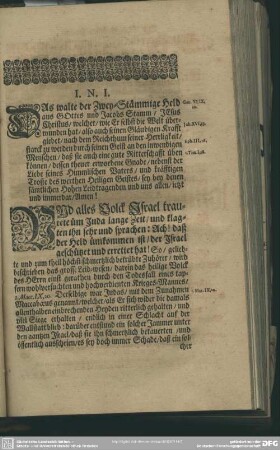 I. N. I.
DAs walte der Zwey-Stämmige Held
aus GOttes und Jacobs Stamm / JEsus
Christus, welcher / wie Er selbst die Welt über-
wunden hat / also auch seinen Gläubigen Krafft
giebet / nach dem Reichthum seiner Herrligkeit /
starck zu werden durch seinen Geist an den inwendigen
Menschen / daß sie auch eine gute Ritterschafft üben
können / dessen theuer erworbene Gnade / nebenst der
Liebe seines Himmlischen Vaters / und kräfftigen
Troste des werthen Heiligen Geistes / sey bey denen
sämtlichen Hohen Leidtragenden und uns allen / itzt
und immerdar / Amen!
UNd alles Volck Israel trau-
rete üm Juda lange Zeit / und klag-
ten ihn sehr und sprachen: Ach! daß
der Held ümkommen ist / der Israel
geschützet und errettet hat! So / gelieb-
te und zum theil höchst schmertzlich betrübte Zuhörer / wird
beschrieben das grosse Leidwesen / darein das heilige Volck
des HErrn einst gerathen durch den Todesfall eines tapf-
fern wohlversuchten und hochverdienten Krieges-Mannes /
1. Macc. IX, 20. Derselbige war Judas / mit dem Zunahmen
Maccabæus genannt / welcher / als Er sich wider die damals
allenthalben einbrechenden Heyden ritterlich gehalten / und
viel Siege erhalten / endlich in einer Schlacht auf der
Wallstatt blieb: darüber entstund ein solcher Jammer unter
den gantzen Israel / daß sie ihn schmertzlich bekauerten / und
öffentlich ausschrien / es sey doch immer Schade / daß ein sol-
cher